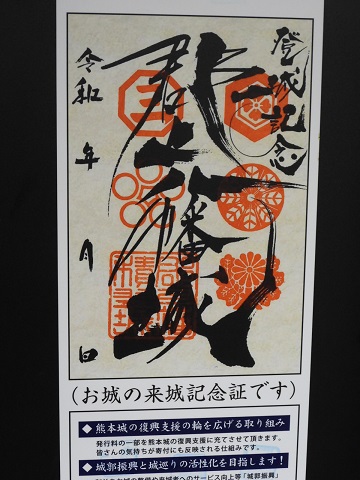 登城記念
郡上八幡城
令和 年 月 日
(お城の来城記念証です)
◆熊本城の復興支援の輪を広げる取り組み
発行料の一部を熊本城の復興支援に充てさせて頂きます。
皆さんの気持ちが寄付にも反映される仕組みです。
◆城郭振興と城巡りの活性化を目指します!